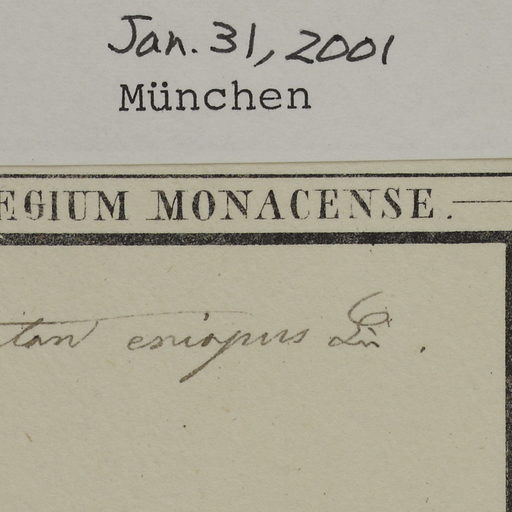 Jan. 31, 2001
München
EGIUM MONACENSE.
eriopus